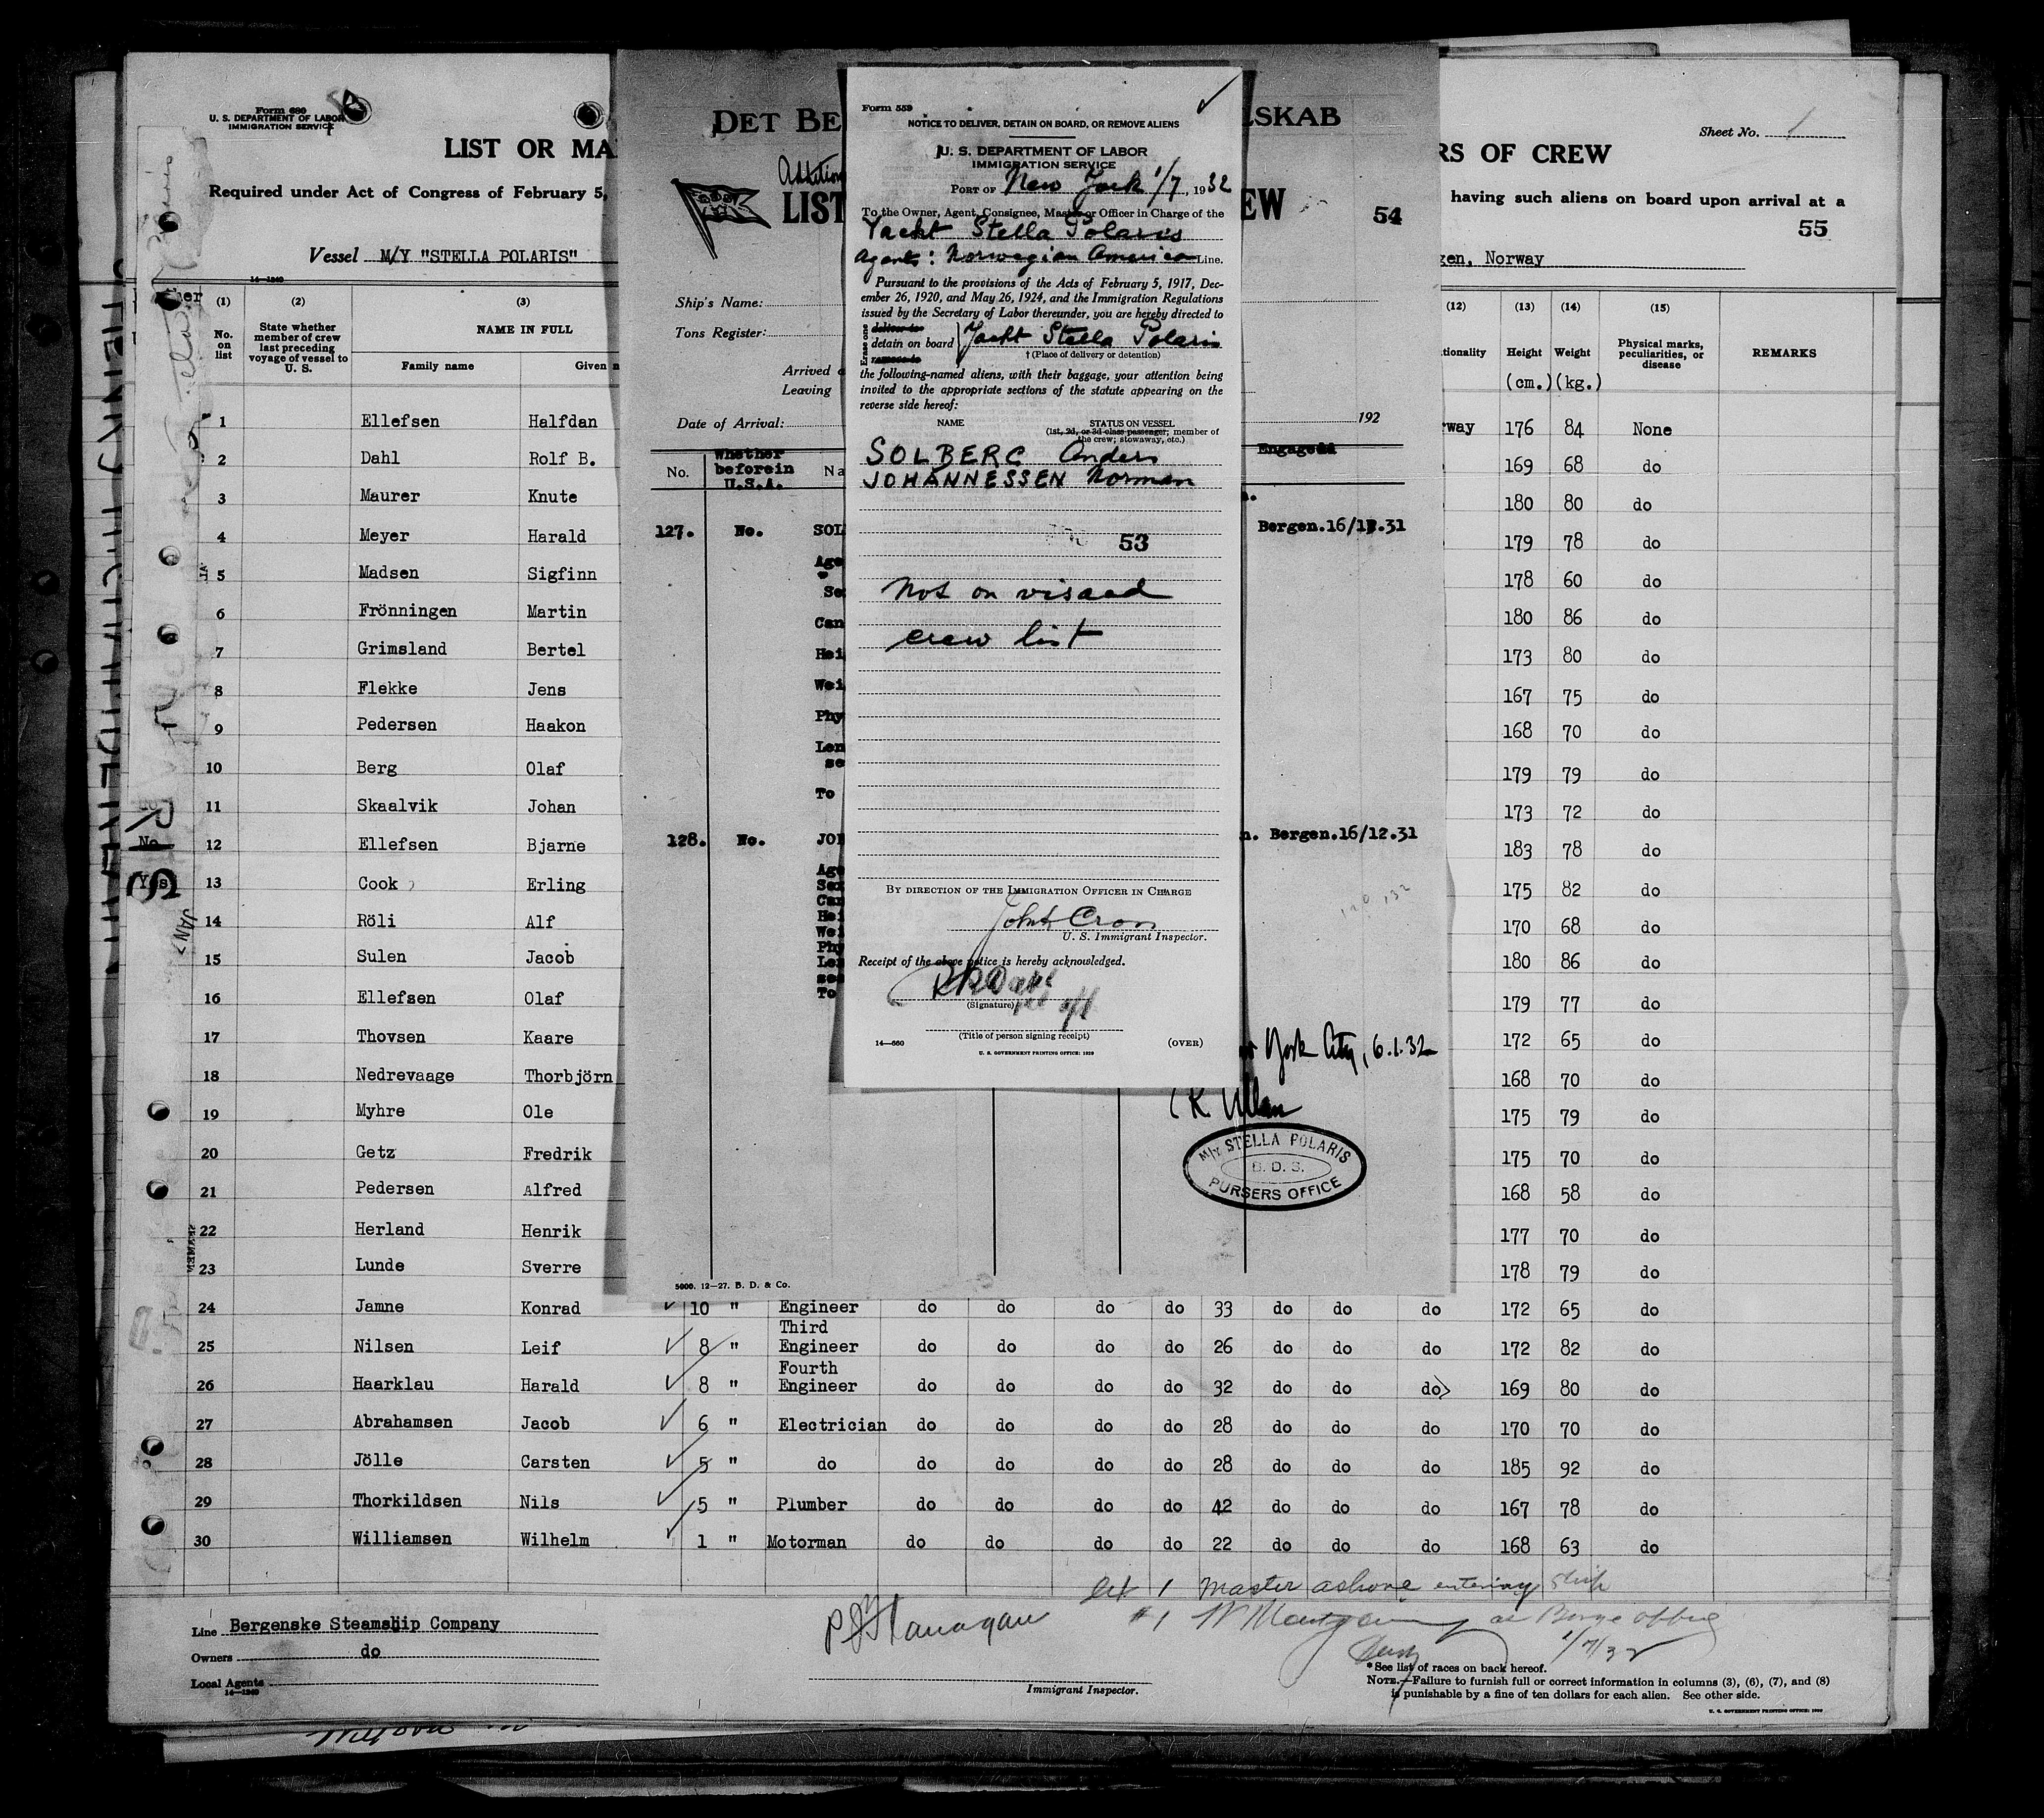 Form 680
U. S. DEPARTMENT OF LABOR
IMMIGRATION SERVICE
LIST OR MA
Required under Act of Congress of February 5,
Vessel M/Y "STELLA POLARIS"
14—1240
(1) (2) (3)
No. on list
State whether member of crew last preceding voyage of vessel to U. S.
NAME IN FULL
Family name Given n
1 Ellefsen Halfdan
2 Dahl Rolf B.
3 Maurer Knute
4 Meyer Harald
5 Madsen Sigfinn
6 Frönningen Martin
7 Grimsland Bertel
8 Flekke Jens
9 Pedersen Haakon
10 Berg Olaf
11 Skaalvik Johan
12 Ellefsen Bjarne
13 Cook Erling
14 Röli Alf
15 Sulen Jacob
16 Ellefsen Olaf
17 Thovsen Kaare
18 Nedrevaage Thorbjörn
19 Myhre Ole
20 Getz Fredrik
21 Pedersen Alfred
22 Herland Henrik
23 Lunde Sverre
24 Jamne Konrad 10 " Engineer do do do do 33 do do do 172 65 do
25 Nilsen Leif 8 " Third Engineer do do do do 26 do do do 172 82 do
26 Haarklau Harald 8 " Fourth Engineer do do do do 32 do do do 169 80 do
27 Abrahamsen Jacob 6 " Electrician do do do do 28 do do do 170 70 do
28 Jölle Carsten 5 " do do do do do 28 do do do 185 92 do
29 Thorkildsen Nils 5 " Plumber do do do do 42 do do do 167 78 do
30 Williamsen Wilhelm 1 " Motorman do do do do 22 do do do 168 63 do
Line Bergenske Steamship Company
Owners do
Local Agents
14—1240
P J Flanagan
Immigrant Inspector.
let 1 Master ashore entering ship
#1
1/7/32
*See list of races on back hereof.
NOTE.—Failure to furnish full or correct information in columns (3), (6), (7), and (8)
is punishable by a fine of ten dollars for each alien. See other side.
U. S. GOVERNMENT PRINTING OFFICE: 1929
DET BE
LSKAB
Addition
LIST
EW
54
Ship's Name:
Tons Register:
Arrived
Leaving
Date of Arrival:
192
No.
Whether beforein U.S.A.
Na
Engaged
127. No. SOL
Bergen.16/12.31
Age
Se
Can
Hei
Wei
Phy
Len
se
To
128. No. JOH
n. Bergen.16/12.31
Age
Sex
Can
Hei
Wei
Phy
Len
see
To
York City, 6.1.32
M/Y STELLA POLARIS
B. D. S.
PURSERS OFFICE
5000. 12—27. B. D. & Co.
Form 559
NOTICE TO DELIVER, DETAIN ON BOARD, OR REMOVE ALIENS
U. S. DEPARTMENT OF LABOR
IMMIGRATION SERVICE
PORT OF New York 1/7, 1932
To the Owner, Agent, Consignee, Master or Officer in Charge of the
Yacht Stella Polaris
Agents: Norwegian America Line.
Pursuant to the provisions of the Acts of February 5, 1917, Dec-
ember 26, 1920, and May 26, 1924, and the Immigration Regulations
issued by the Secretary of Labor thereunder, you are hereby directed to
Erase one
deliver to
detain on board
remove to
Yacht Stella Polaris
† (Place of delivery or detention)
the following-named aliens, with their baggage, your attention being
invited to the appropriate sections of the statute appearing on the
reverse side hereof:
NAME STATUS ON VESSEL
(1st, 2d, or 3d class passenger; member of
the crew; stowaway, etc.)
SOLBERG Anders
JOHANNESSEN Norman
53
Not on visaed
crew list
BY DIRECTION OF THE IMMIGRATION OFFICER IN CHARGE
John Cron
U. S. Immigrant Inspector.
Receipt of the above notice is hereby acknowledged.
(Signature)
(Title of person signing receipt)
14—660
(OVER)
U. S. GOVERNMENT PRINTING OFFICE: 1929
Sheet No. 1
RS OF CREW
having such aliens on board upon arrival at a
55
gen, Norway
(12) (13) (14) (15)
tionality
Height
(cm.)
Weight
(kg.)
Physical marks, peculiarities, or disease
REMARKS
rway 176 84 None
169 68 do
180 80 do
179 78 do
178 60 do
180 86 do
173 80 do
167 75 do
168 70 do
179 79 do
173 72 do
183 78 do
175 82 do
170 68 do
180 86 do
179 77 do
172 65 do
168 70 do
175 79 do
175 70 do
168 58 do
177 70 do
178 79 do